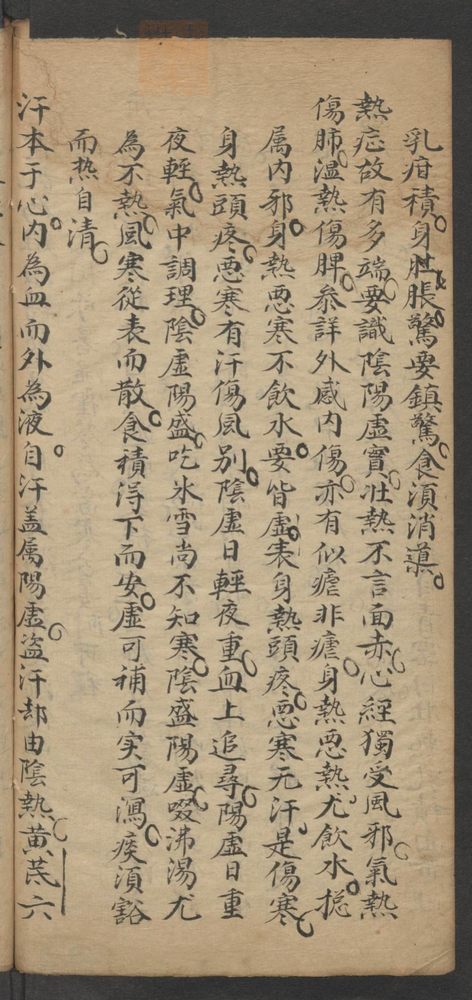 乳疳積。身肚脹。驚要鎮驚。食須消導。
熱症故有多端。要識陰陽虛實。壯熱不言面赤。心經獨受風邪。氣熱
傷肺。溫熱傷脾。參詳外感內傷。亦有似瘧非瘧。身熱惡熱。尤飲水。
属內邪。身熱惡寒不飲水。要皆虛表。身熱頭疼。惡寒无汗。是傷寒。
身熱頭疼。惡寒有汗傷風別。陰虛日輕夜重。血上追尋。陽虛日重
夜輕。氣中調理。陰虛陽盛。吃氷雪尚不知寒。陰盛陽虛。啜沸湯尤
為不熱。風寒從表而散。食積得下而安。虛可補而实可瀉。痰須豁
而热自清。
汗本于心。內為血而外為液。自汗盖属陽虛。盗汗却由陰熱。黄芪六